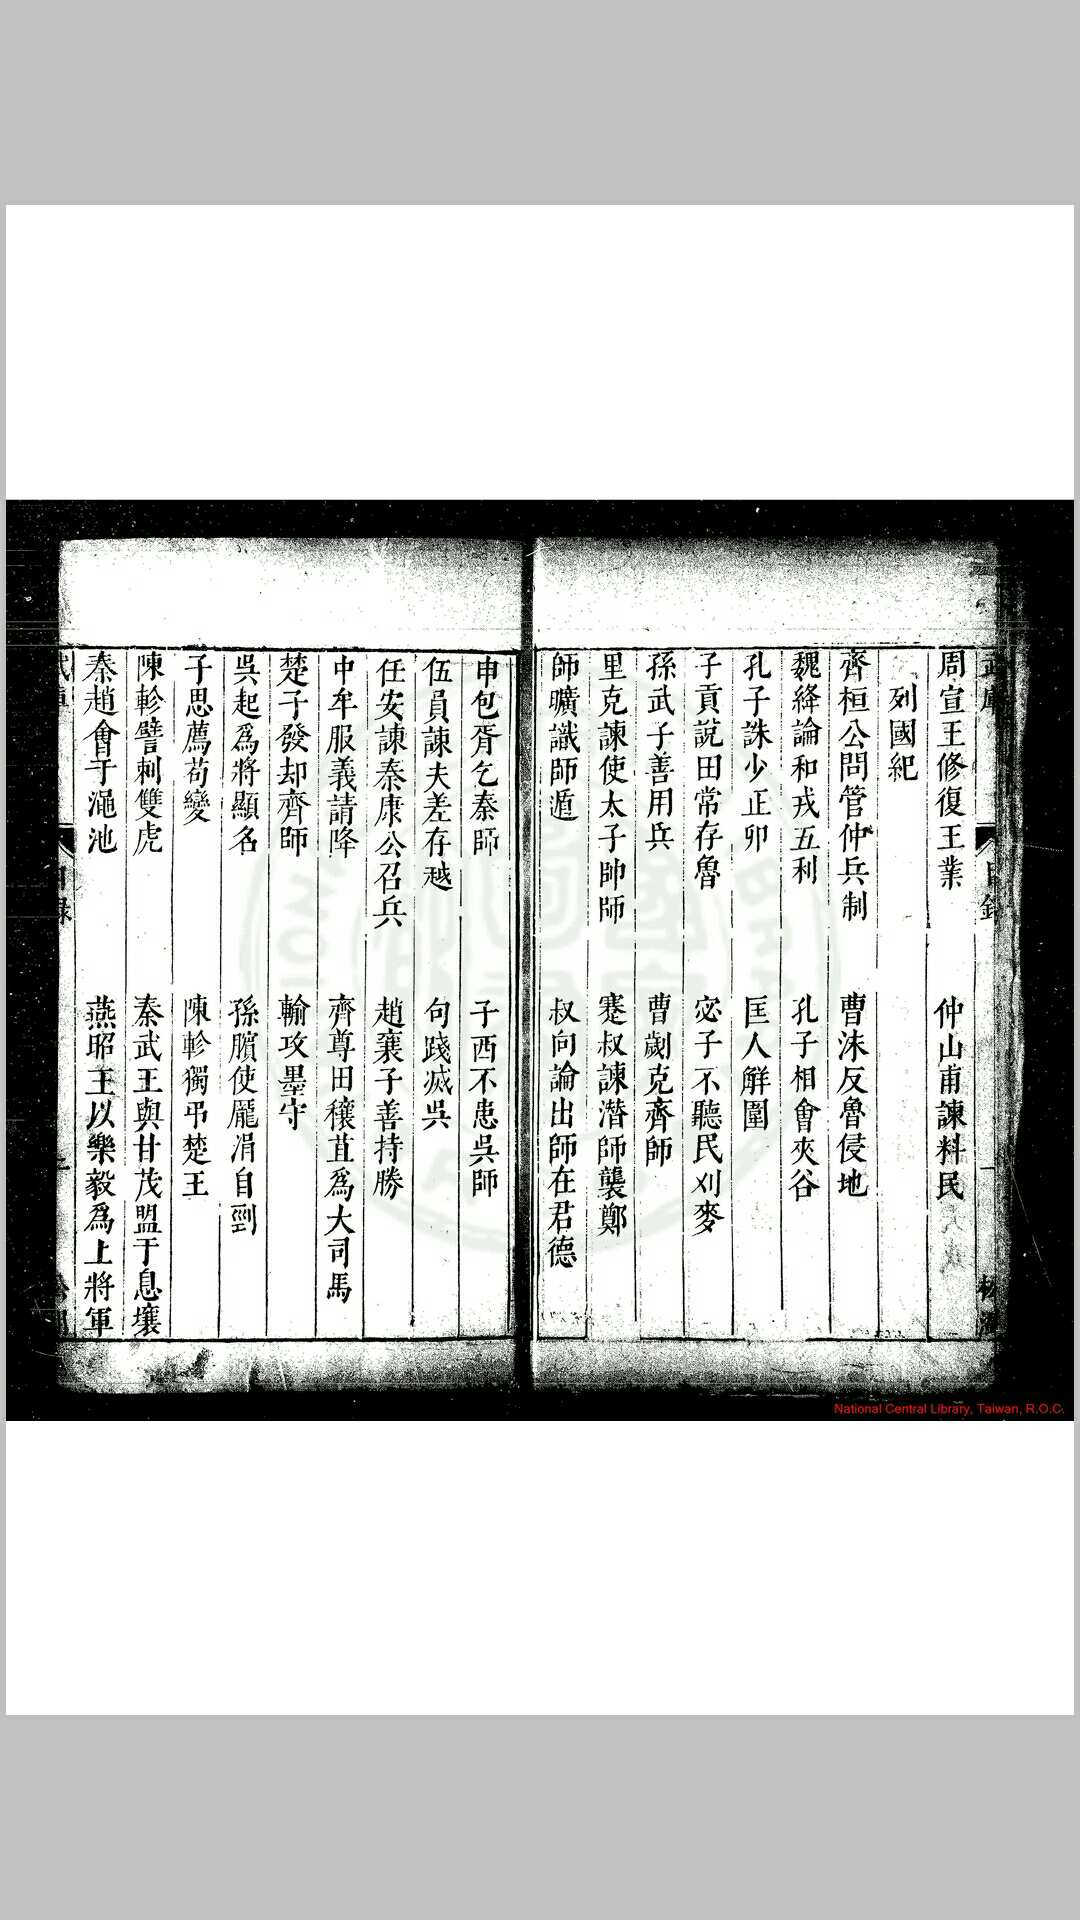 周宣王修復王業　仲山甫諫料民
列國紀
齊桓公問管仲兵制　曹沫反魯侵地
魏絳論和戎五利　孔子相會夾谷
孔子誅少正卯　匡人解圍
子貢說田常存魯　宓子不聽民刈麥
孫武子善用兵　曹劌克齊師
里克諫使太子帥師　蹇叔諫潛師襲鄭
師曠識師遁　叔向論出師在君德
申包胥乞秦師　子西不患吳師
伍員諫夫差存越　句踐滅吳
任安諫秦康公召兵　趙襄子善持勝
中牟服義請降　齊尊田穰苴爲大司馬
楚子發却齊師　輸攻墨守
吳起爲將顯名　孫臏使龐涓自剄
子思薦苟變　陳軫獨弔楚王
陳軫譬刺雙虎　秦武王與甘茂盟于息壤
秦趙會于澠池　燕昭王以樂毅爲上將軍
National Central Library, Taiwan, R.O.C.